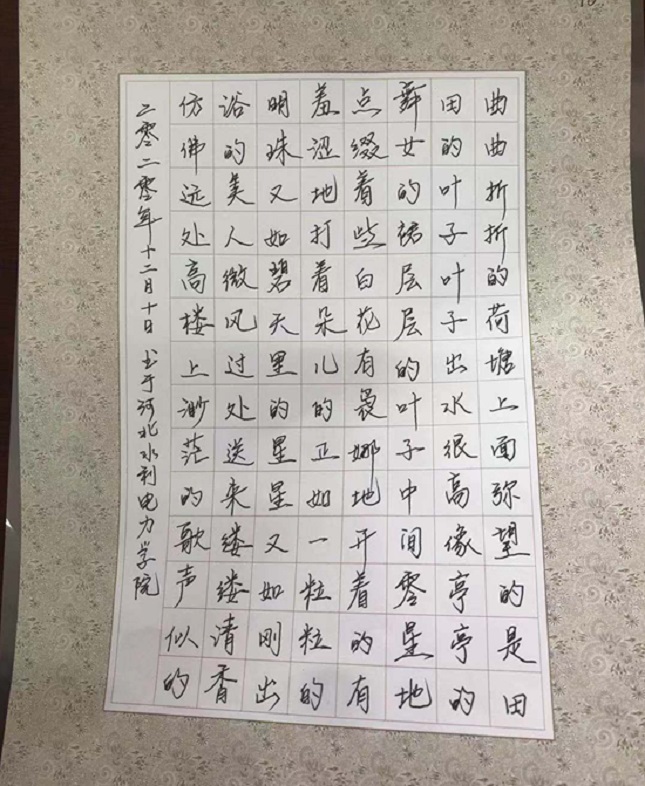 曲曲折折的荷塘上面弥望的是田
田的叶子叶子出水很高像亭亭的
舞女的裙层层的叶子中间零星地
点缀着些白花有袅娜地开着的有
羞涩地打着朵儿的正如一粒粒的
明珠又如碧天里的星星又如刚出
浴的美人微风过处送来缕缕清香
仿佛远处高楼上渺茫的歌声似的
二零二零年十二月十日 书于河北水利电力学院